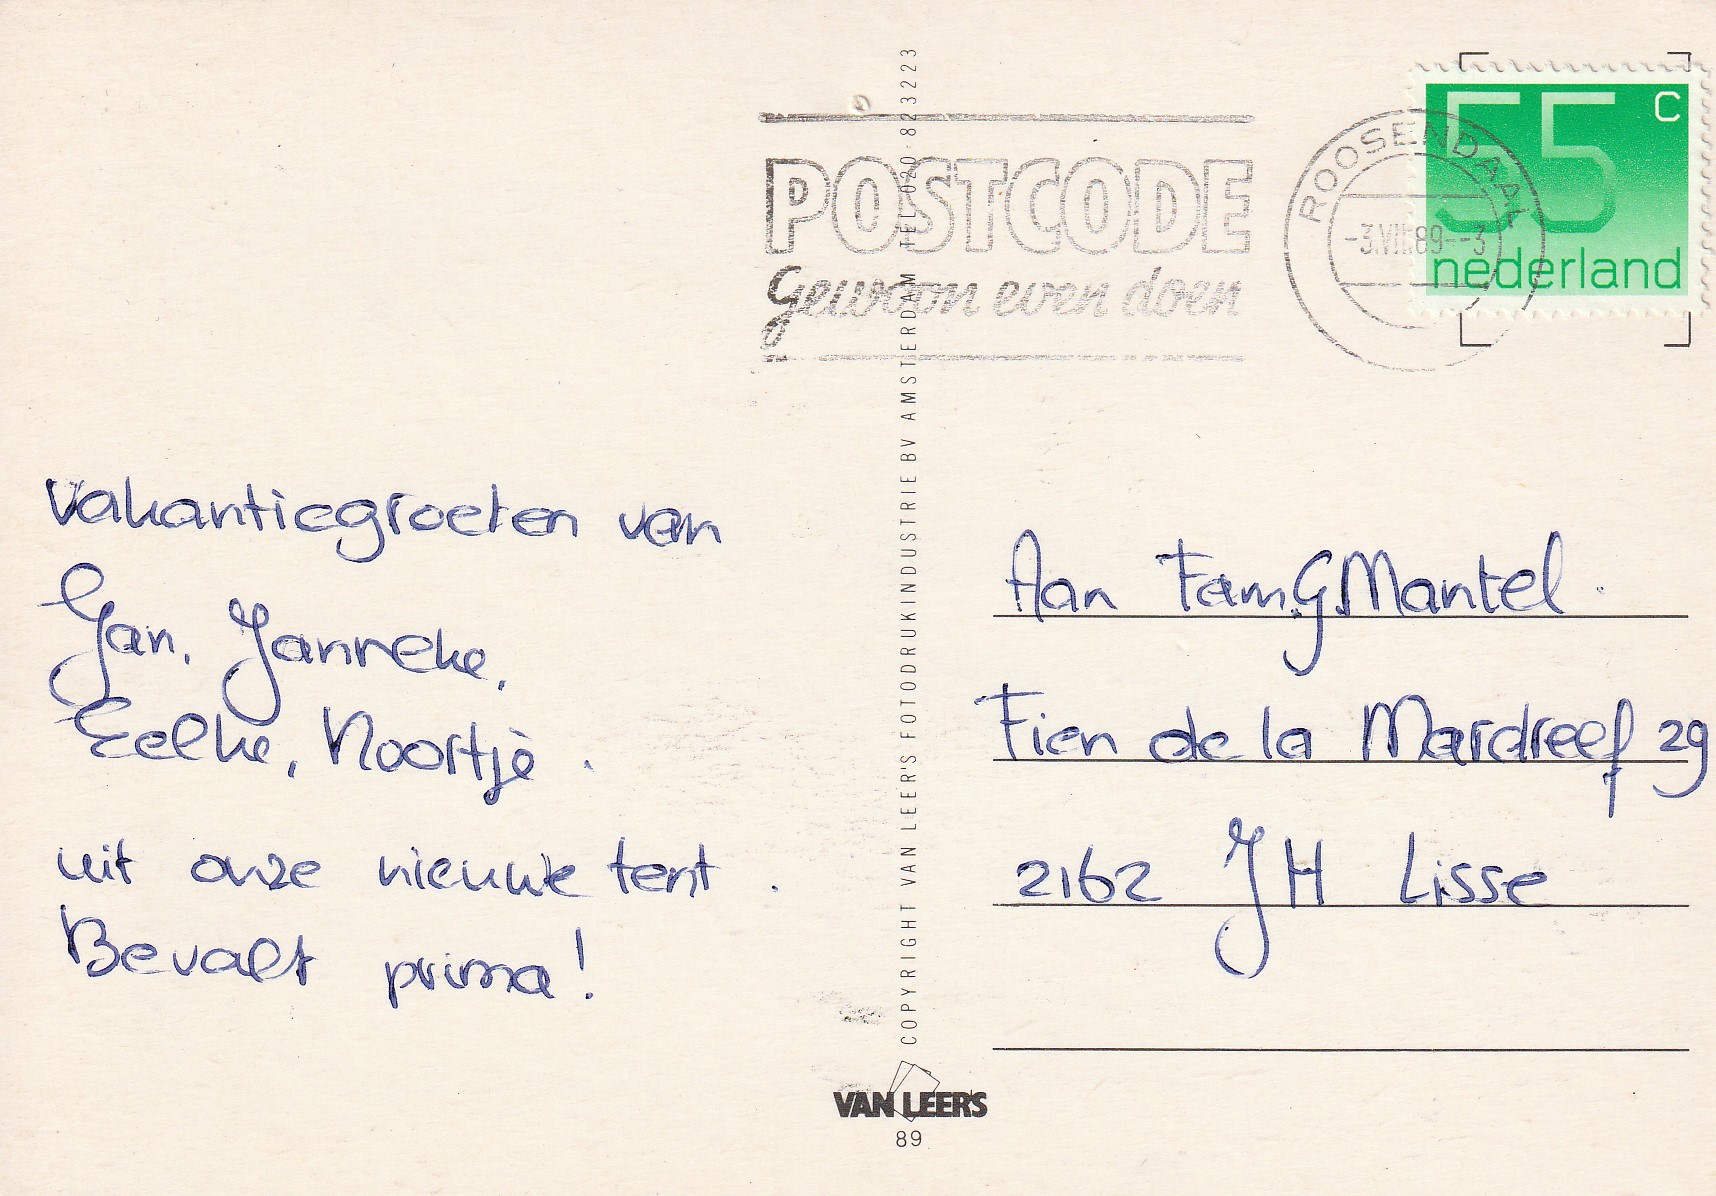 vakantiegroeten van
Jan, Janneke,
Eelke, Noortje.
uit onze nieuwe tent.
Bevalt prima!
POSTCODE
gewoon even doen
ROOSENDAAL
-3.VII.89--3
55 c
nederland
COPYRIGHT VAN LEER'S FOTODRUKINDUSTRIE BV AMSTERDAM TEL 020-823223
Aan Fam. G. Mantel
Fien de la Mardreef 29
2162 JH Lisse
VAN LEER'S
89